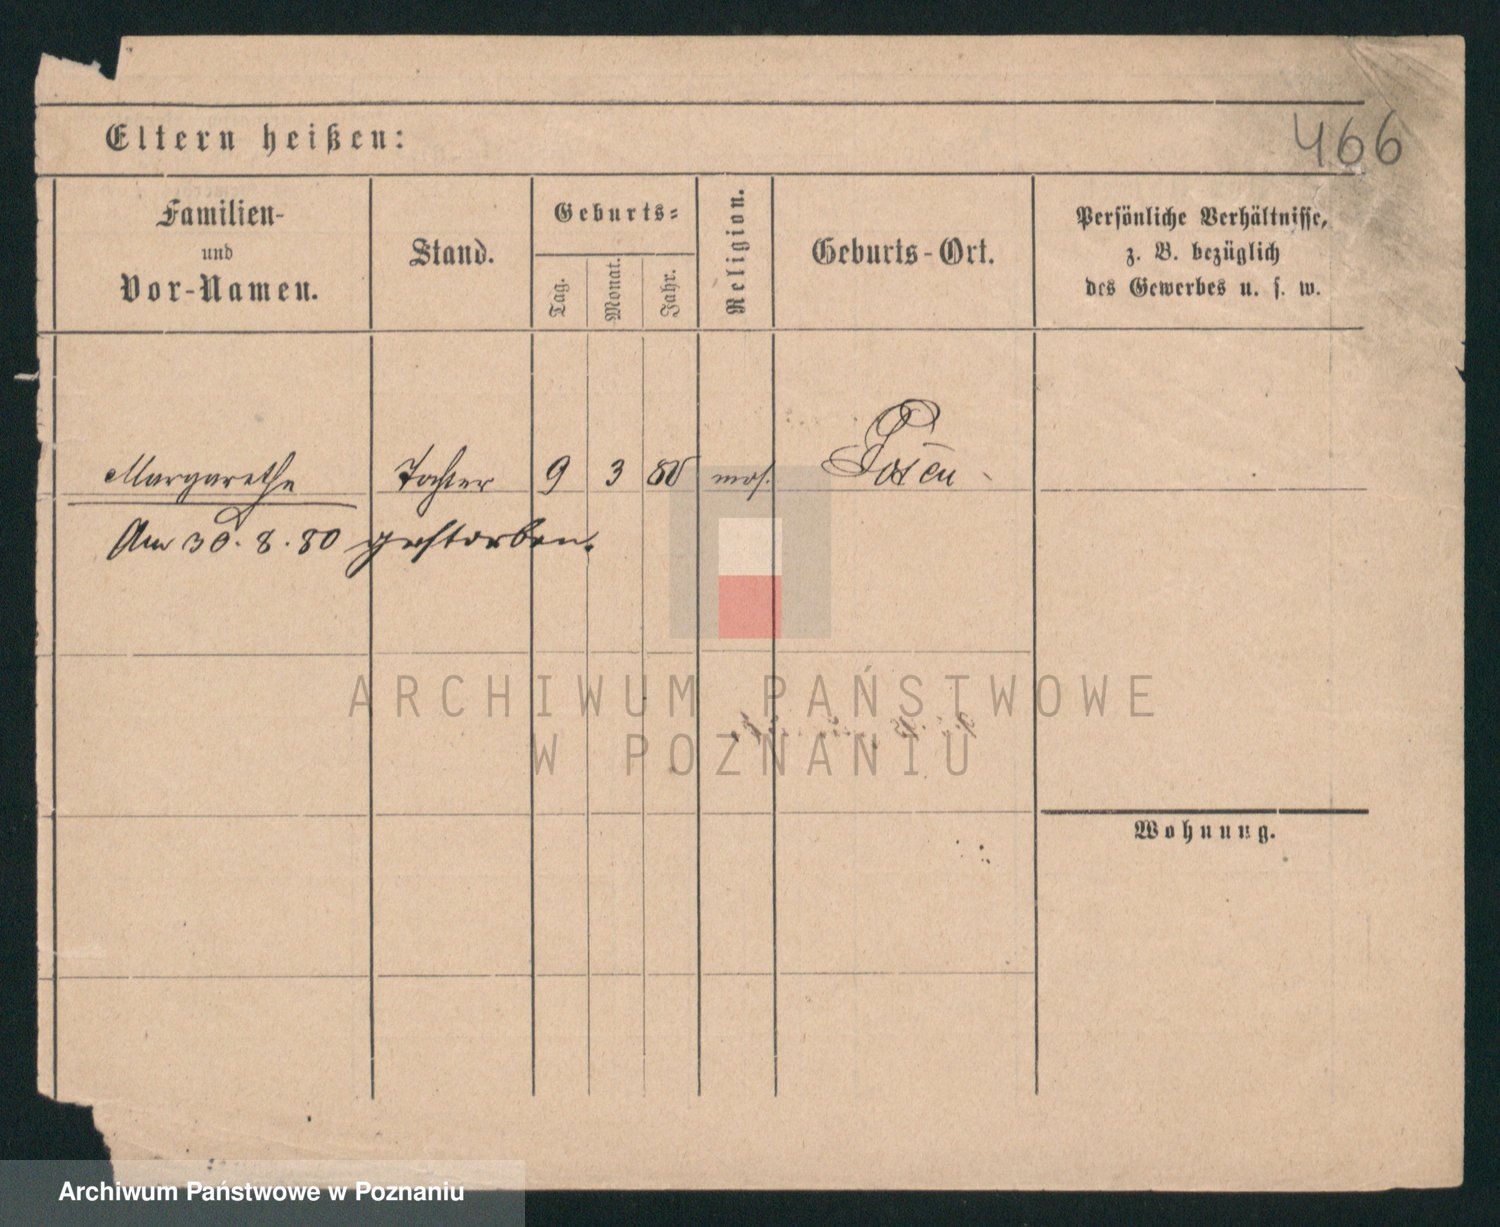 466
Eltern heißen:
Familien-
und
Vor-Namen.
Stand.
Geburts-
Tag.
Monat.
Jahr.
Religion.
Geburts-Ort.
Persönliche Verhältnisse,
z. B. bezüglich
des Gewerbes u. s. w.
Margarethe Tochter 9 3 80 mos. Posen
Am 30. 8. 80 gestorben.
ARCHIWUM PAŃSTWOWE
W POZNANIU
Wohnung.
Archiwum Państwowe w Poznaniu